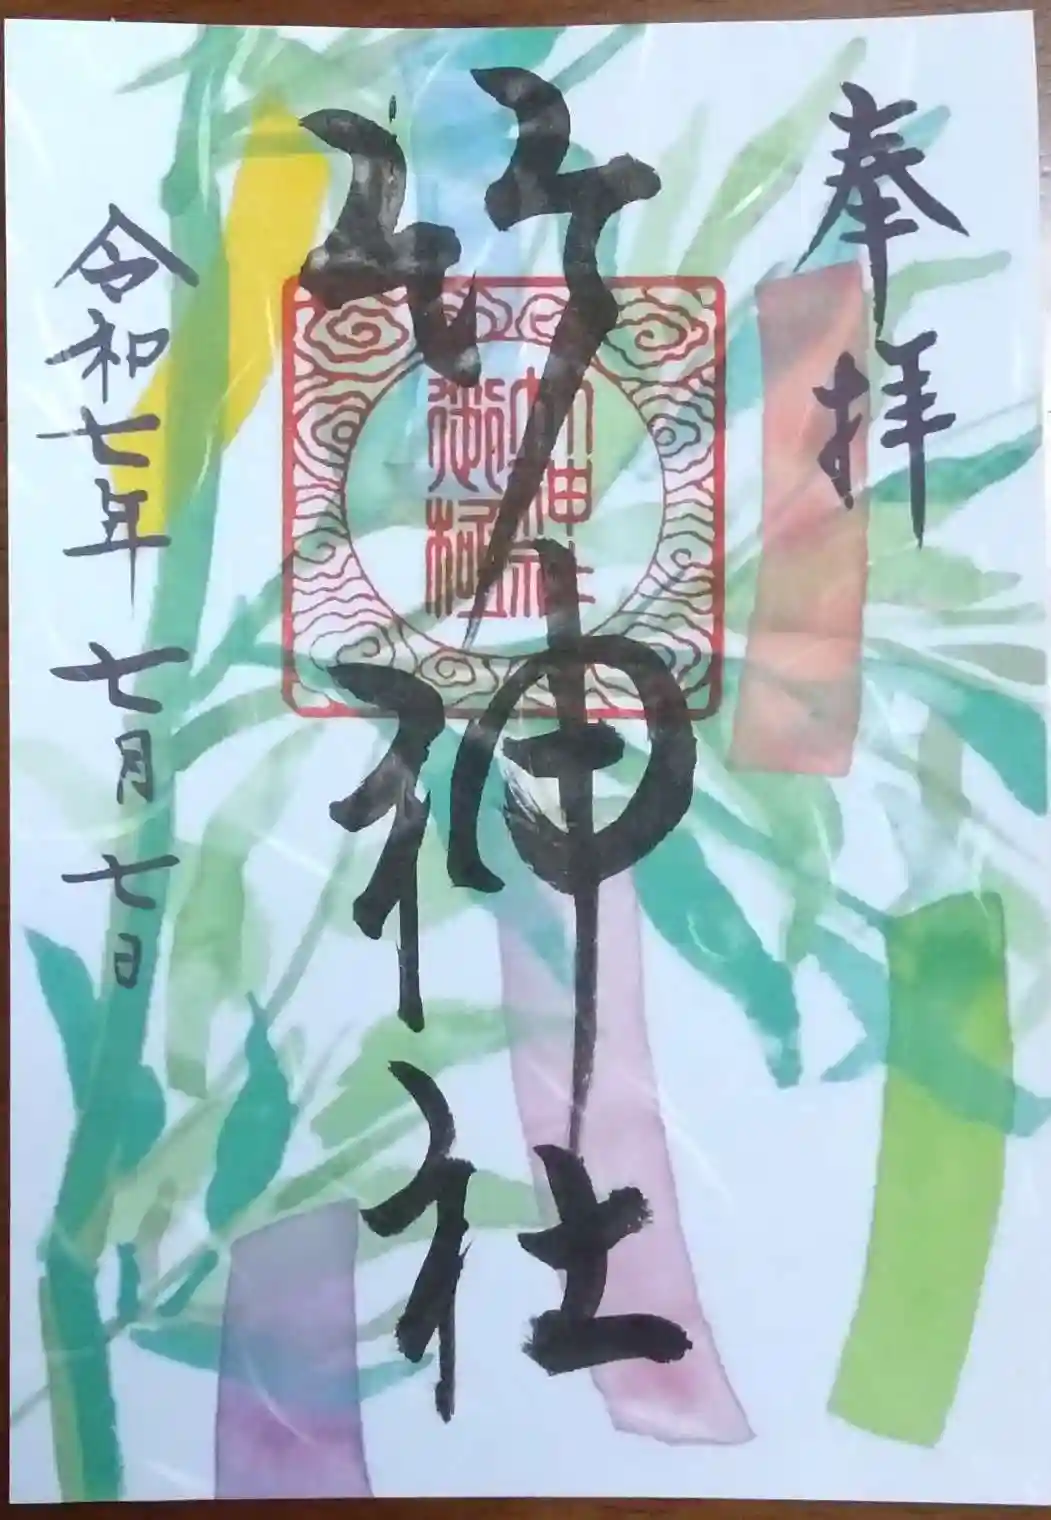 奉拝
竹神社
竹神社
令和七年七月七日